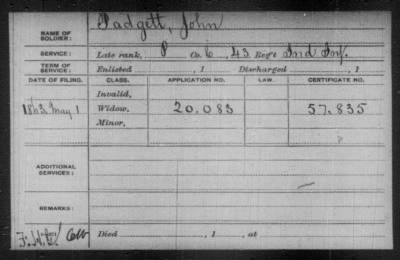 NAME OF SOLDIER: Padgett, John
SERVICE: Late rank, P Co. C, 43 Reg't Ind Inf.
TERM OF SERVICE: Enlisted , 1 Discharged , 1
DATE OF FILING. CLASS. APPLICATION NO. LAW. CERTIFICATE NO.
Invalid,
1863 May 1 Widow, 20.083 57.835
Minor,
ADDITIONAL SERVICES:
REMARKS:
Died , 1 , at